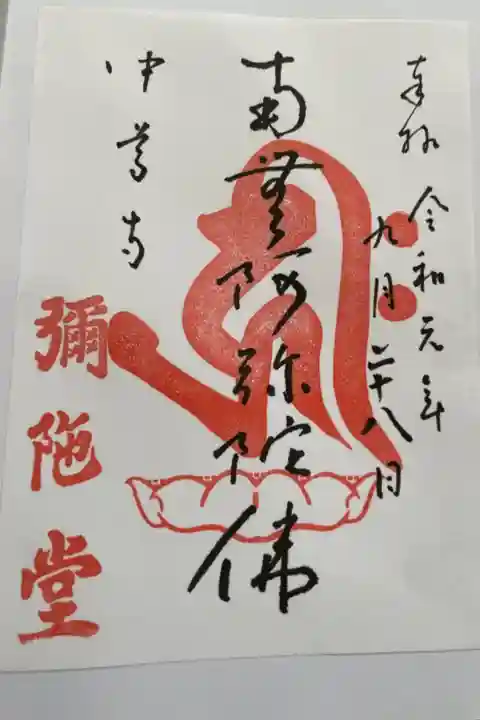 奉拝
令和元年
九月二十八日
南無阿弥陀佛
中尊寺
彌陀堂